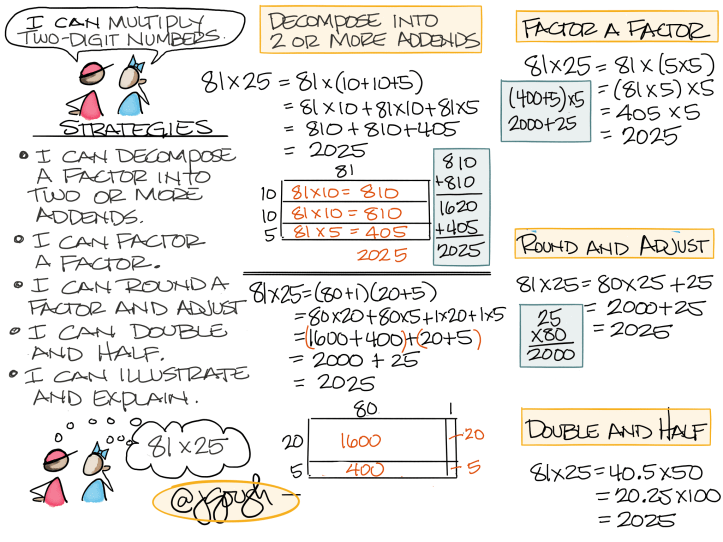 I CAN MULTIPLY
TWO-DIGIT NUMBERS.
STRATEGIES
• I CAN DECOMPOSE
A FACTOR INTO
TWO OR MORE
ADDENDS.
• I CAN FACTOR
A FACTOR.
• I CAN ROUND A
FACTOR AND ADJUST
• I CAN DOUBLE
AND HALF.
• I CAN ILLUSTRATE
AND EXPLAIN.
81×25
@jgough
DECOMPOSE INTO
2 OR MORE ADDENDS
81×25 = 81×(10+10+5)
= 81×10+81×10+81×5
= 810+810+405
= 2025
81
10 81×10= 810
10 81×10= 810
5 81×5 = 405
2025
810
+810
1620
+405
2025
81×25=(80+1)(20+5)
=80×20+80×5+1×20+1×5
=(1600+400)+(20+5)
= 2000 + 25
= 2025
80 1
20 1600 -20
5 400 -5
FACTOR A FACTOR
81×25 = 81×(5×5)
= (81×5)×5
= 405 ×5
= 2025
(400+5)×5
2000+25
ROUND AND ADJUST
81×25=80×25+25
= 2000+25
= 2025
25
×80
2000
DOUBLE AND HALF
81×25=40.5×50
= 20.25×100
= 2025